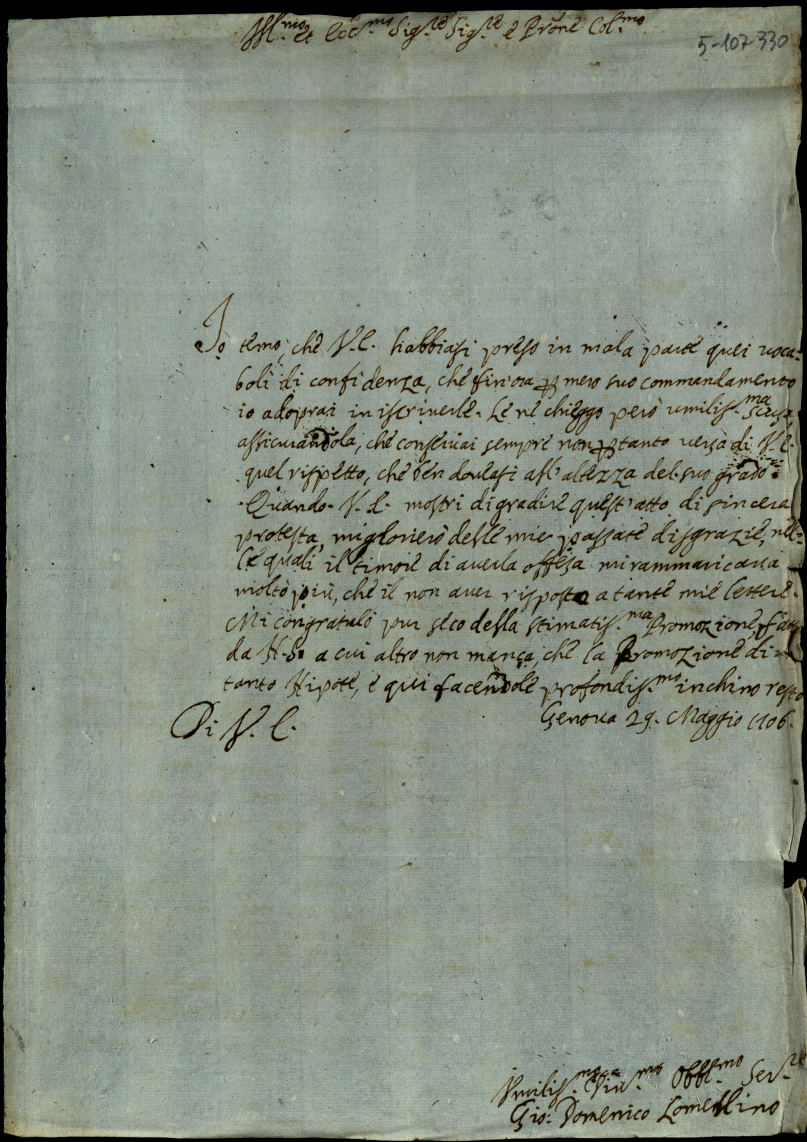 Ill.mo et Ecc.mo Sig.re Sig.re e Prone Col.mo
5-107-330
Io temo, che V.E. habbiasi preso in mala parte quei voca-
boli di confidenza, che fin'ora per mero suo commandamento
io adoprai in iscriverle. Le ne chieggo però umilis.ma scusa,
assicurandola, che conservai sempre non per tanto verso di V.E.
quel rispetto, che ben doveasi all'altezza del suo grado.
Quando V.E. mostri di gradire quest'atto di sincera
protesta, migliorerò delle mie passate disgrazie, nel-
le quali il timore di averla offesa mi rammaricava
molto più, che il non aver risposta a tante mie lettere.
Mi congratulo pur seco della stimatis.ma Promozione, fatta
da N.S. a cui altro non manca, che la Promozione di
tanto Nipote, e qui facendole profondis.mo inchino resto
Di V.E.
Genova 29. Maggio 1706.
Umilis.mo Div.mo Obbl.mo Ser.re
Gio: Domenico Lomellino